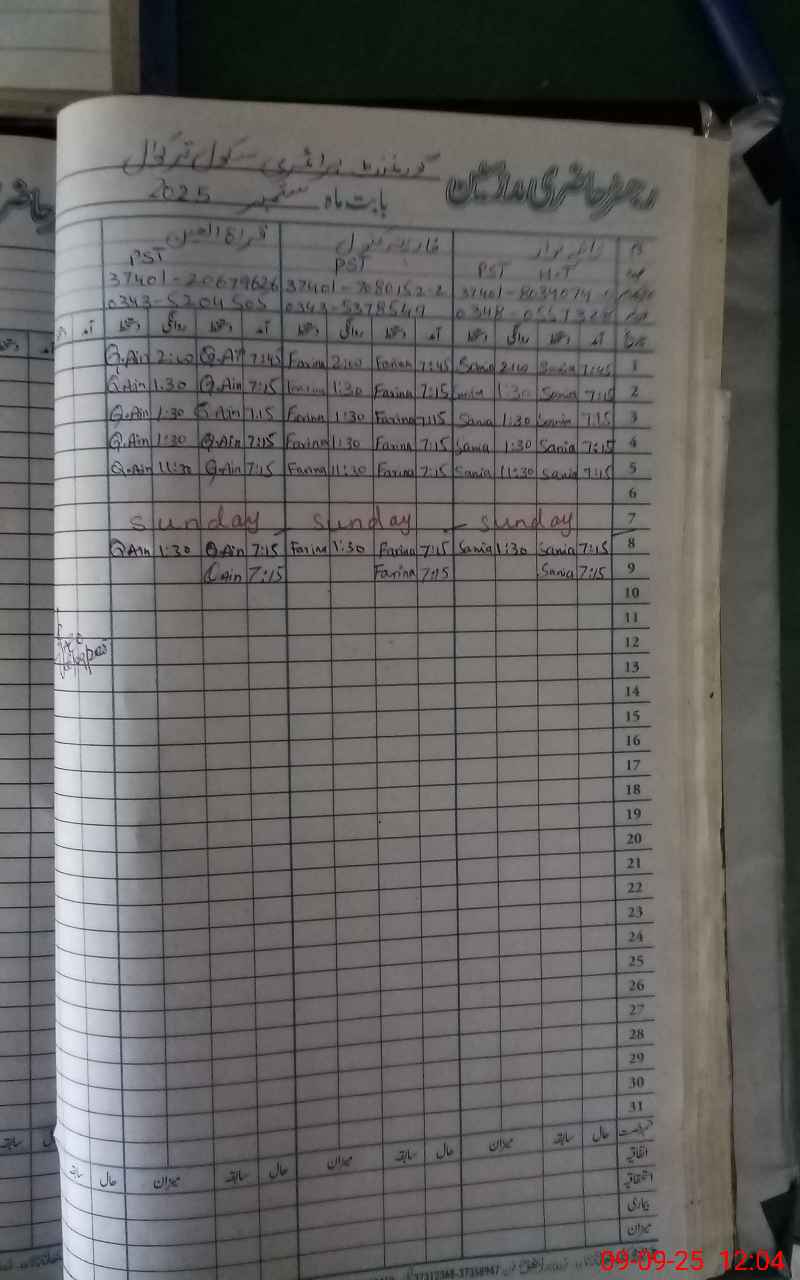 رجسٹر حاضری مدارسین گورنمنٹ پرائمری سکول
بابت ماہ ستمبر 2025
قراۃ العین
PST H.T PST PST
37401-7080152-2 37401-20679626
0343-5378549 0343-5204505
آمد دستخط روانگی دستخط آمد دستخط روانگی دستخط آمد دستخط روانگی دستخط
1 7:45 Sania 2:00 Sania 7:45 Farina 2:00 Farina 7:45 Q.Ain 2:00 Q.Ain
2 7:15 Sania 1:30 7:15 Farina 1:30 Farina 7:15 Q.Ain 1:30 Q.Ain
3 7:15 Sania 1:30 Sania 7:15 Farina 1:30 Farina 7:15 Q.Ain 1:30 Q.Ain
4 7:15 Sania 1:30 Sania 7:15 Farina 1:30 Farina 7:15 Q.Ain 1:30 Q.Ain
5 7:15 Sania 11:30 Sania 7:15 Farina 11:30 Farina 7:15 Q.Ain 11:30 Q.Ain
6
7 sunday - sunday - sunday
8 7:15 Sania 1:30 Sania 7:15 Farina 1:30 Farina 7:15 Q.Ain 1:30 Q.Ain
9 7:15 Sania 7:15 Farina 7:15 Q.Ain
10
11
12
13
14
15
16
17
18
19
20
21
22
23
24
25
26
27
28
29
30
31
حال سابقہ میزان حال سابقہ میزان حال سابقہ میزان حال سابقہ
اتفاقیہ
استحقاقیہ
بیماری
میزان
37312368-37358967
09-09-25 12:04